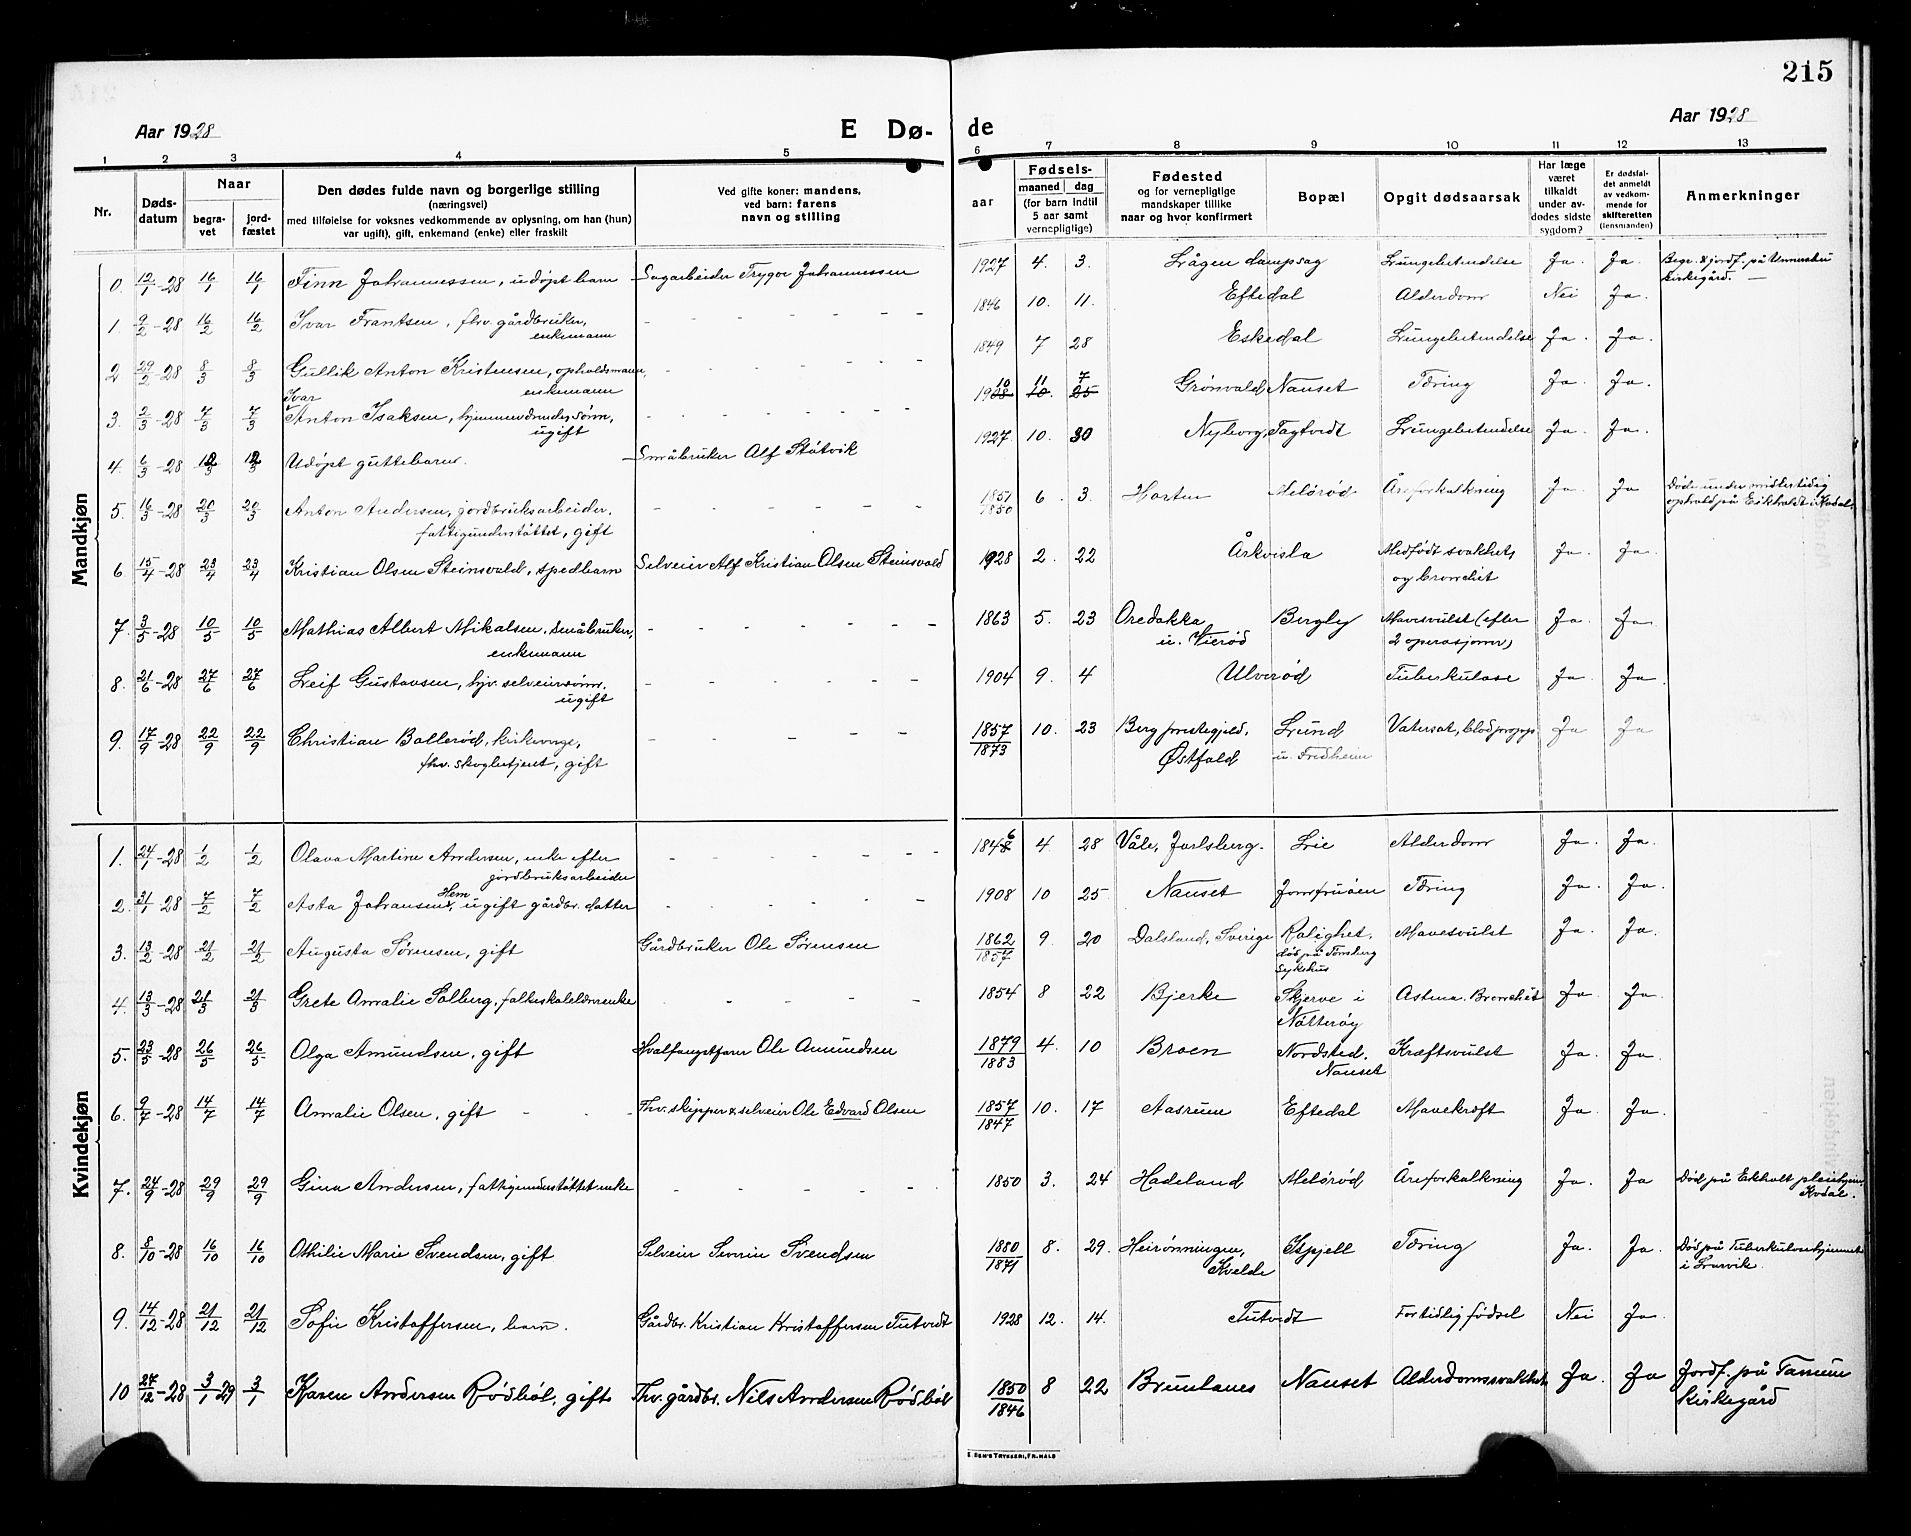 215
Aar 1928
E Dø-
de
Aar 1928
1 2 3 4 5 6 7 8 9 10 11 12 13
Nr.
Døds-
datum
Naar
begra-
vet
jord-
fæstet
Den dødes fulde navn og borgerlige stilling
(næringsvei)
med tilføielse for voksnes vedkommende av oplysning, om han (hun)
var ugift), gift, enkemand (enke) eller fraskilt
Ved gifte koner: mandens,
ved barn: farens
navn og stilling
aar
Fødsels-
maaned dag
(for barn indtil
5 aar samt
vernepligtige)
Fødested
og for vernepligtige
mandskaper tillike
naar og hvor konfirmert
Bopæl
Opgit dødsaarsak
Har læge
været
tilkaldt
under av-
dødes sidste
sygdom?
Er dødsfal-
det anmeldt
av vedkom-
mende for
skifteretten
(lensmanden)
Anmerkninger
Mandkjøn
0. 12/1-28 16/1 16/1 Finn Johannessen, udøpt barn Sagarbeider Trygve Johannessen 1927 4. 3. Lågen dampsag Lungebetendelse Ja. Ja. Begr. & jordf. på
kirkegård. —
1. 9/2-28 16/2 16/2 Ivar Frantsen, fhv. gårdbruker, - - - - - - 1846 10. 11. Eftedal Alderdom Nei Ja.
enkemann
2 29/2-28 8/3 8/3 Gullik Anton Kristensen, opholdsmann, - - - - - 1849 7 28 Eskedal Lungebetendelse Ja. Ja.
enkemann
Ivar
3. 2/3-28 7/3 7/3 Anton Isaksen, hjemmeværende sønn, - - - - - - 1910 11 7 Grønvold Nauset Tæring Ja. Ja.
ugift
4. 6/3-28 12/3 12/3 Udøpt guttebarn. Småbruker Alf Støtvik 1927. 10. 30 Nyborg, Tagtvedt Lungebetendelse Ja. Ja.
5. 16/3-28 20/3 20/3 Anton Andersen, jordbruksarbeider, - - - - - - 1851 6. 3. Horten Melsrød Åreforkalkning Ja. Ja Døde under midlertidig
1850
fattigunderstøttet, gift
ophold på i Kodal.
6. 15/4-28 23/4 23/4 Kristian Olsen Steinsvold, spedbarn Selveier Alf Kristian Olsen Steinsvold 1928 2. 22 Årkvisla Medfødt svakhet Ja. Ja.
og bronchit
7. 3/5-28 10/5 10/5 Mathias Albert Mikalsen, småbruker, - - - - - - 1863 5. 23 Oredakka Bergly Mavesvulst (efter Ja. Ja.
enkemann u. Vierød 2 operasjoner)
8. 21/6-28 27/6 27/6 Leif Gustavsen, hjv. selveiersønn, - - - - - - 1904 9. 4 Ulverød Tuberkulose Ja Ja.
ugift
9. 17/9-28 22/9 22/9 Christian Bollerød, kirkeverge, - - - - - - 1857 10. 23 Berg prestegjeld, Lund Vatersot, blodpropp Ja Ja
1873
fhv. skogbetjent, gift Østfold u. Fredheim
Kvindekjøn
1. 24/1-28 1/2 1/2 Olava Martine Andersen, enke efter - - - - - - 1846 4 28 Våle, Jarlsberg. Lie Alderdom Ja. Ja.
jordbruksarbeider
Hem
2. 31/1-28 7/2 7/2 Asta Johansen, ugift gårdbr. datter - - - - - - 1908 10 25 Nauset Jomfruøen Tæring Ja. Ja.
3. 13/2-28 21/2 21/2 Augusta Sørensen, gift Gårdbruker Ole Sørensen 1862 9. 20 Dalsland, Sverige Rolighet. Mavesvulst Ja. Ja.
1857
død på Tønsberg
sykehus
4. 13/3-28 21/3 21/3 Grete Amalie Solberg, folkeskolelærerenke - - - - 1854 8 22 Bjerke Skjerve i Astma. Bronchit Ja. Ja.
Nøtterøy
5. 23/5-28 26/5 26/5 Olga Amundsen, gift Hvalfangstfarer Ole Amundsen 1879 4. 10 Broen Nordsted. Kræftsvulst Ja. Ja.
1883
Nauset
6. 9/7-28 14/7 14/7 Amalie Olsen, gift - - - Fhv. skipper & selveier Ole Edvard Olsen 1857 10. 17 Aasrum Eftedal Mavekræft Ja. Ja.
1847
7. 24/9-28 29/9 29/9 Gina Andersen, fattigunderstøttet enke - - - - - - 1850 3. 24 Hadeland Melsrød Åreforkalkning Ja. Ja Død på Ekholt pleiehjem,
Kodal.
8. 8/10-28 16/10 16/10 Othilie Marie Svendsen, gift Selveier Severin Svendsen 1880 8. 29. Heirønningen, Istpjell Tæring Ja. Ja. Død på Tuberkulosehjemmet
1871
Kvelde i Larvik.
9. 14/12-28 21/12 21/12 Sofie Kristoffersen, barn. Gårdbr. Kristian Kristoffersen Tutvedt 1928 12. 14. Tutvedt For tidlig fødsel Nei Ja.
10 27/12-28 3/1 29 3/1 Karen Andersen Rødbøl, gift Fhv. gårdbr. Nils Andersen Rødbøl 1850 8 22 Brunlanes Nauset Alderdomssvakhet Ja. Ja Jordf. på Tanum
1846
kirkegård
E. SEM'S TRYKKERI, FR.HALD